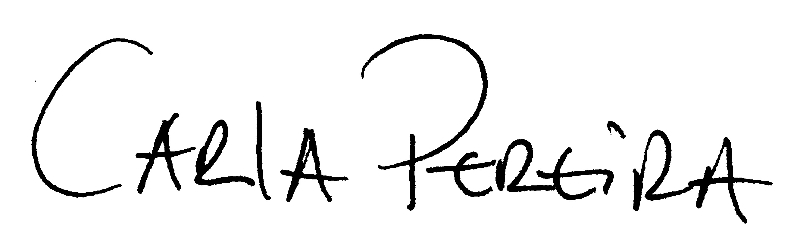 Carla Pereira